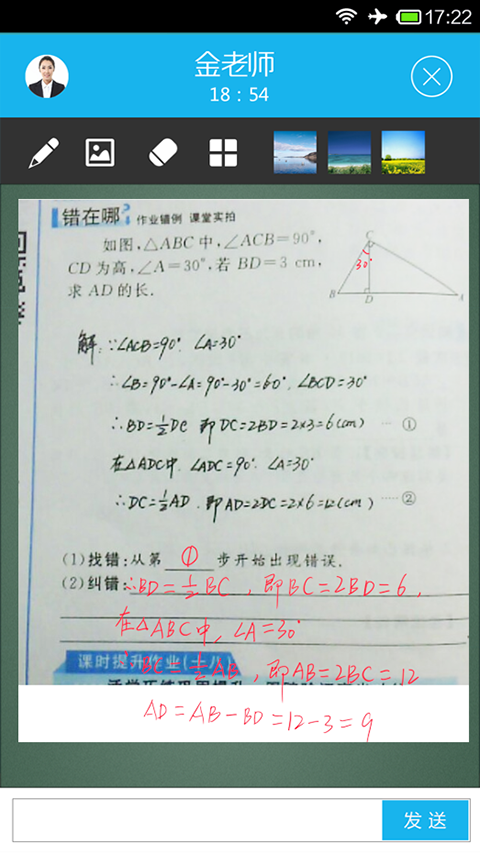 17:22
金老师
18：54
错在哪？ 作业错例 课堂实拍
如图，△ABC中，∠ACB=90°，
CD为高，∠A=30°，若BD=3 cm，
求AD的长.
C
30°
B D A
解：∵∠ACB=90°，∠A=30°
∴∠B=90°-∠A=90°-30°=60°，∠BCD=30°
∴BD=½DC 即DC=2BD=2×3=6(cm) …①
在△ADC中，∠ADC=90°，∠A=30°
∴DC=½AD，即AD=2DC=2×6=12(cm) ……②
(1)找错：从第 ① 步开始出现错误.
(2)纠错：∴BD=½BC，即BC=2BD=6，
在△ABC中，∠A=30°
课时提升作业(十八)
∴BC=½AB，即AB=2BC=12
AD=AB-BD=12-3=9
发送